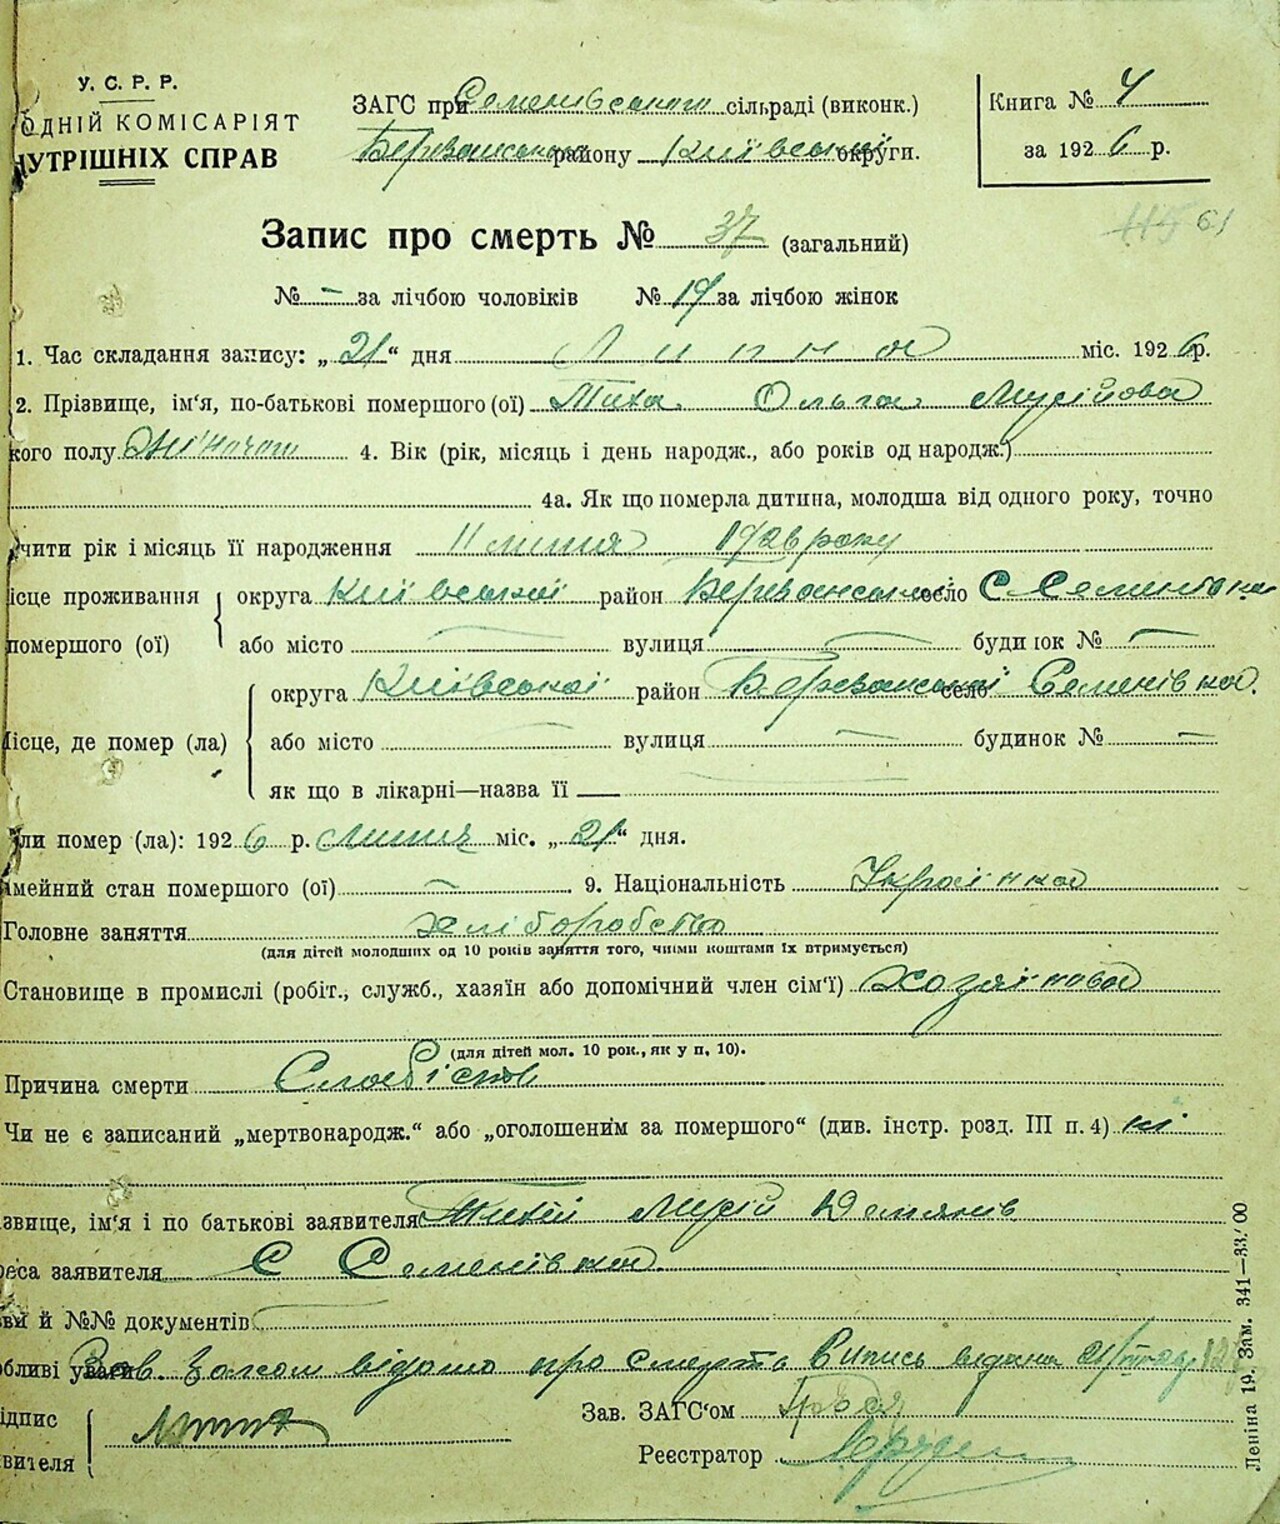 У. С. Р. Р.
ОДНІЙ КОМІСАРІЯТ
НУТРІШНІХ СПРАВ
ЗАГС при Семенівського сільраді (виконк.)
Березанського району Київської округи.
Книга № 4
за 1926 р.
61
Запис про смерть № 37 (загальний)
№ - за лічбою чоловіків № 19 за лічбою жінок
1. Час складання запису: „21“ дня Липня міс. 1926 р.
2. Прізвище, ім‘я, по-батькові помершого (ої) Тиха Ольга Мусійова
кого полу Жіночого 4. Вік (рік, місяць і день народж., або років од народж.)
4а. Як що померла дитина, молодша від одного року, точно
чити рік і місяць її народження 11 липня 1926 року
ісце проживання округа Київської район Березанського село С. Семенівка
помершого (ої) або місто — вулиця — будинок № —
округа Київської район Березанської село Семенівка.
ісце, де помер (ла) або місто — вулиця — будинок № —
як що в лікарні—назва її —
ли помер (ла): 1926 р. Липня міс. „21“ дня.
імейний стан помершого (ої) — 9. Національність Українка
Головне заняття хліборобство
(для дітей молодших од 10 років заняття того, чиїми коштами їх втримується)
Становище в промислі (робіт., служб., хазяїн або допомічний член сім‘ї) Хозяінова
(для дітей мол. 10 рок., як у п. 10).
Причина смерти Слабість
Чи не є записаний „мертвонародж.“ або „оголошеним за помершого“ (див. інстр. розд. III п. 4) ні
звище, ім‘я і по батькові заявителя Тихий Мусій Демянів
реса заявителя С Семенівка.
ви й №№ документів —
бливі уваги Зав. Загсом відомо про смерть Випись видана 21/
ідпис
вителя
Зав. ЗАГС‘ом
Реєстратор
Леніна 19. Зам. 341—33.′00